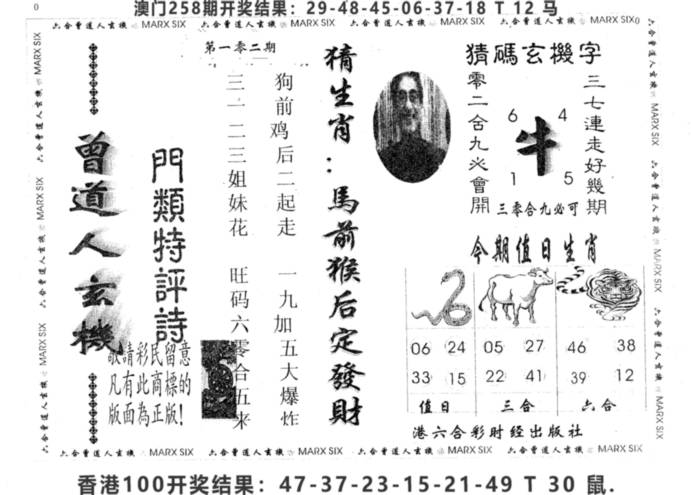 0
澳门258期开奖结果：29-48-45-06-37-18 T 12 马
六合曾道人玄機 MARX SIX 六合曾道人玄機 MARX SIX 六合曾道人玄機 MARX SIX 六合曾道人玄機 MARX SIX0
第一零二期
曾道人玄機
門類特評詩
敬請彩民留意
凡有此商標的
版面為正版!
狗前鸡后二起走 一九加五大爆炸
三一二三姐妹花 旺码六零合五来
猜生肖：馬前猴后定發財
猜碼玄機字
三七連走好幾期
零二舍九必會開
6 4
牛
1 5
三零合九必可
今期值日生肖
06 24 05 27 46 38
33 15 22 41 39 12
值日 三合 六合
港六合彩财经出版社
六合曾道人玄機 MARX SIX 六合曾道人玄機 MARX SIX 六合曾道人玄機 MARX SIX 六合曾道人玄機 MARX SIX
香港100开奖结果：47-37-23-15-21-49 T 30 鼠.